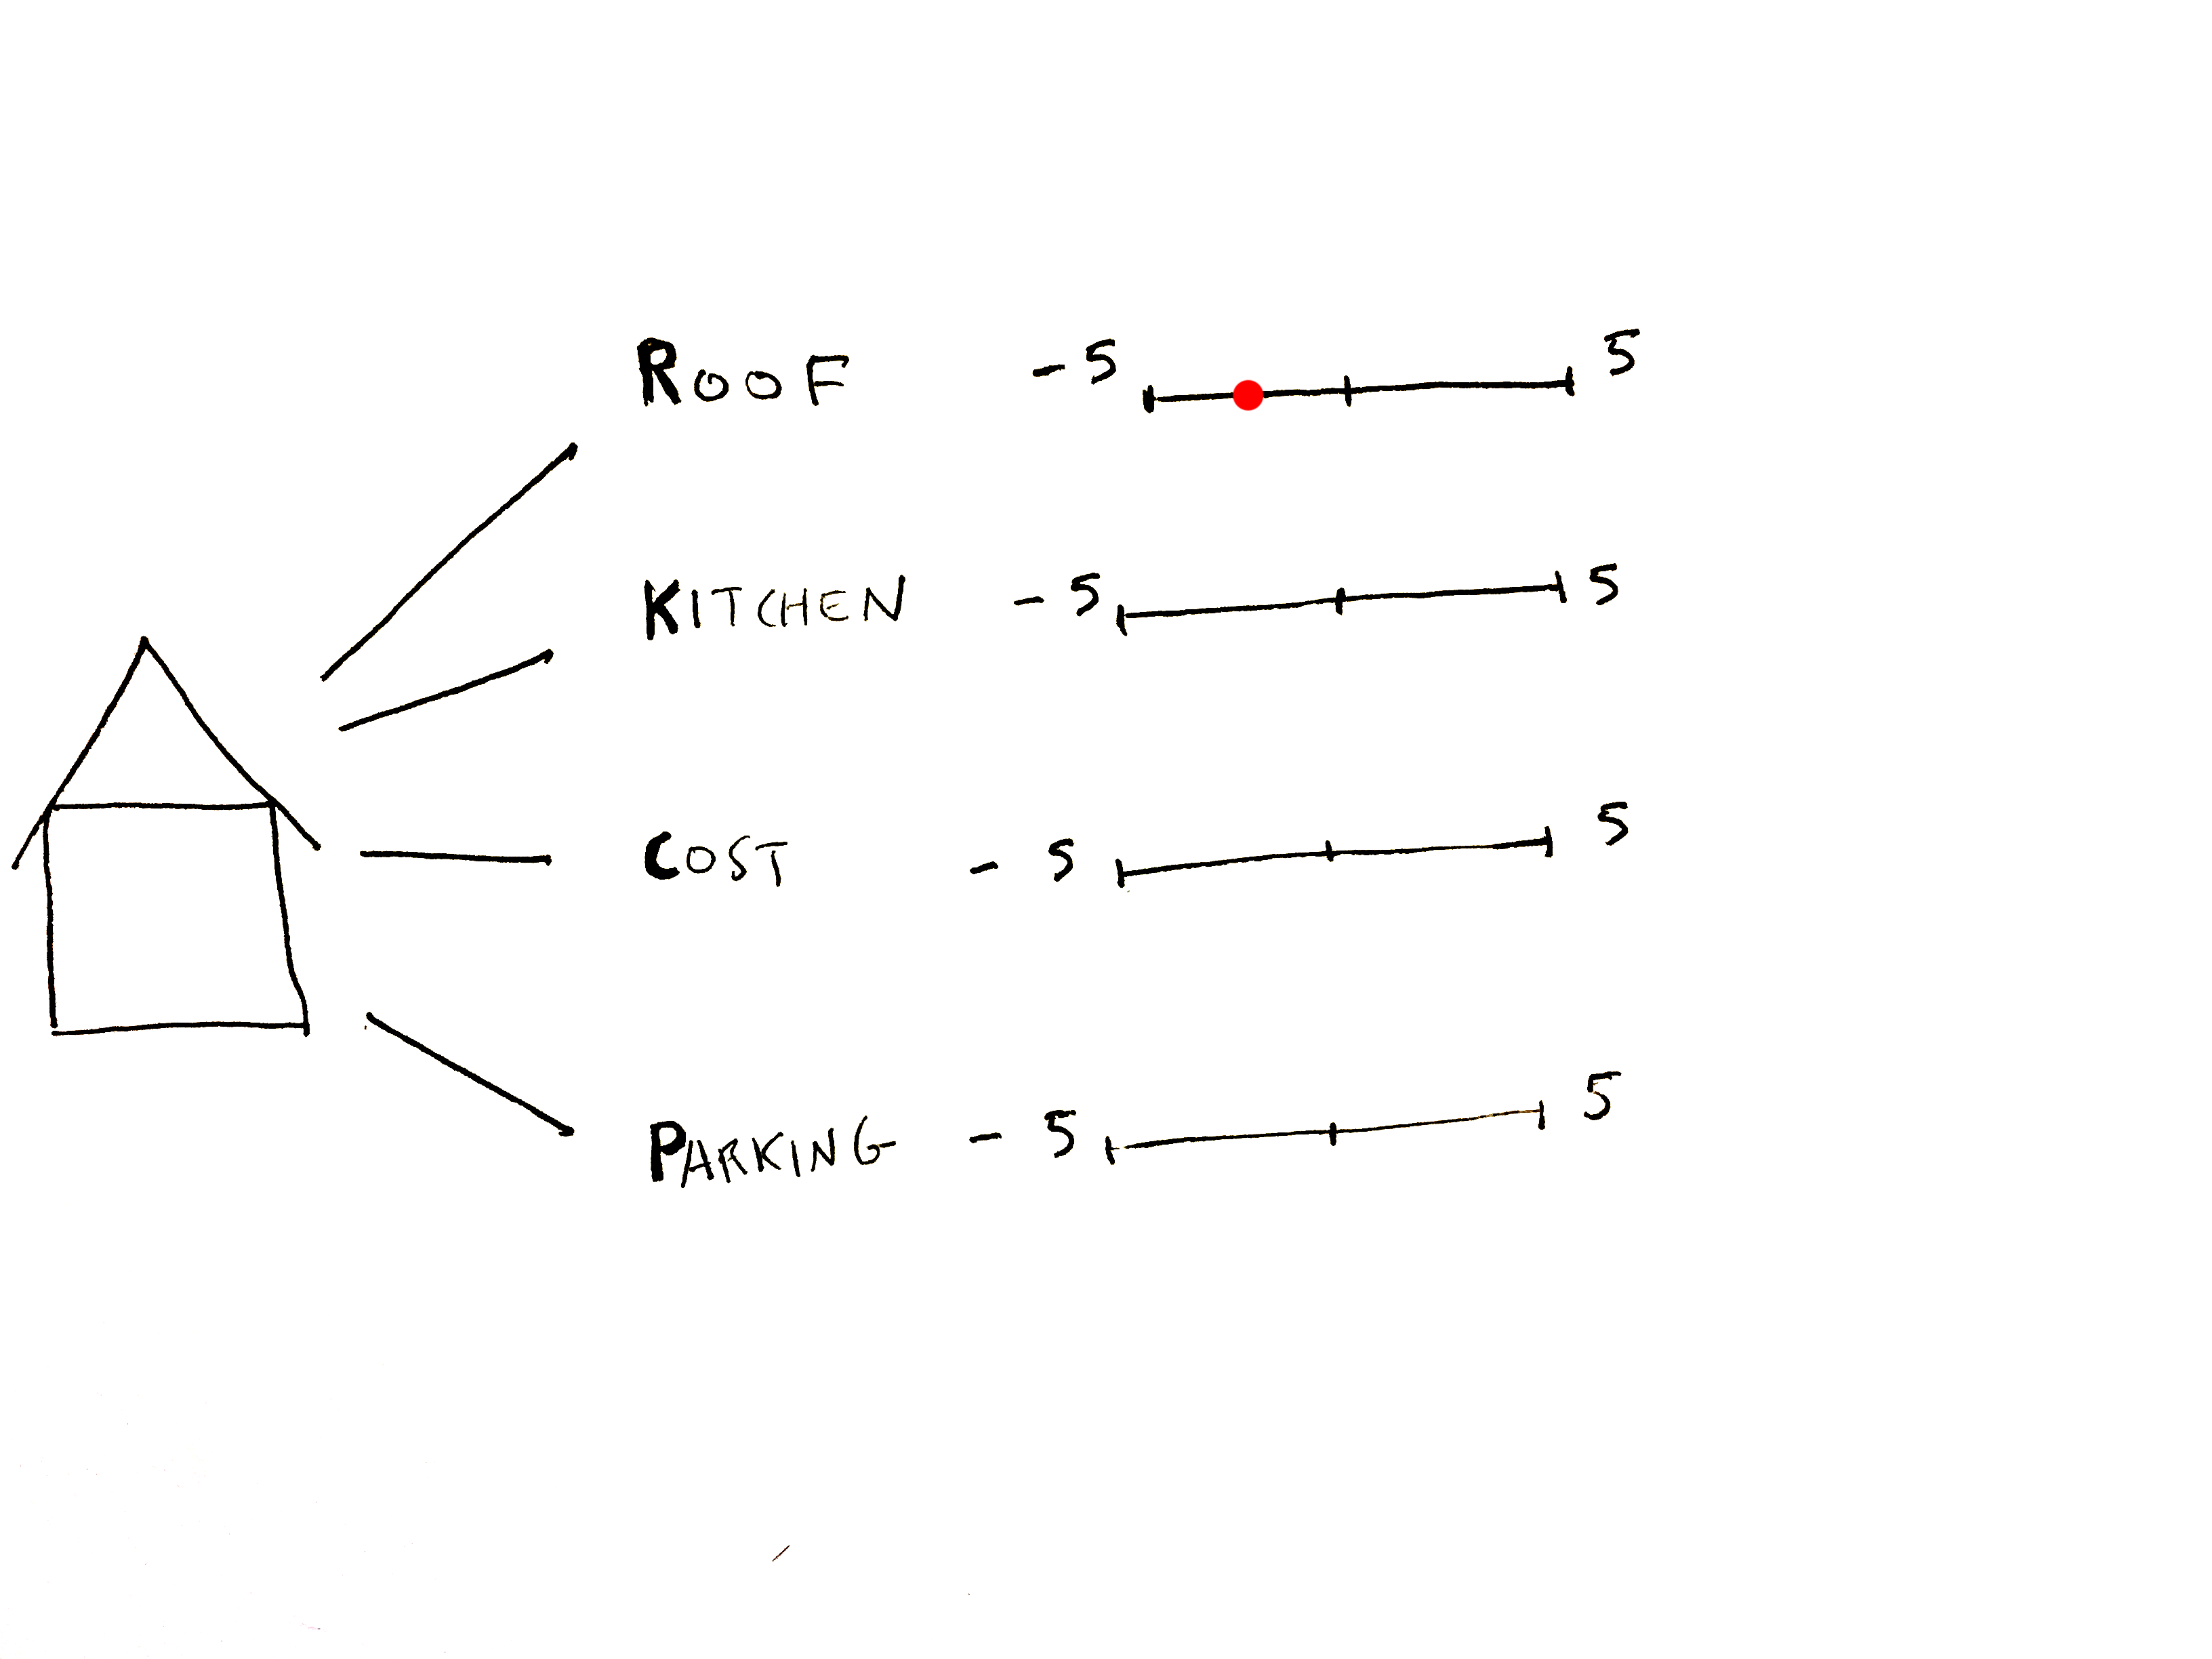 ROOF -5 5
KITCHEN -5 5
COST - 5 5
PARKING - 5 5